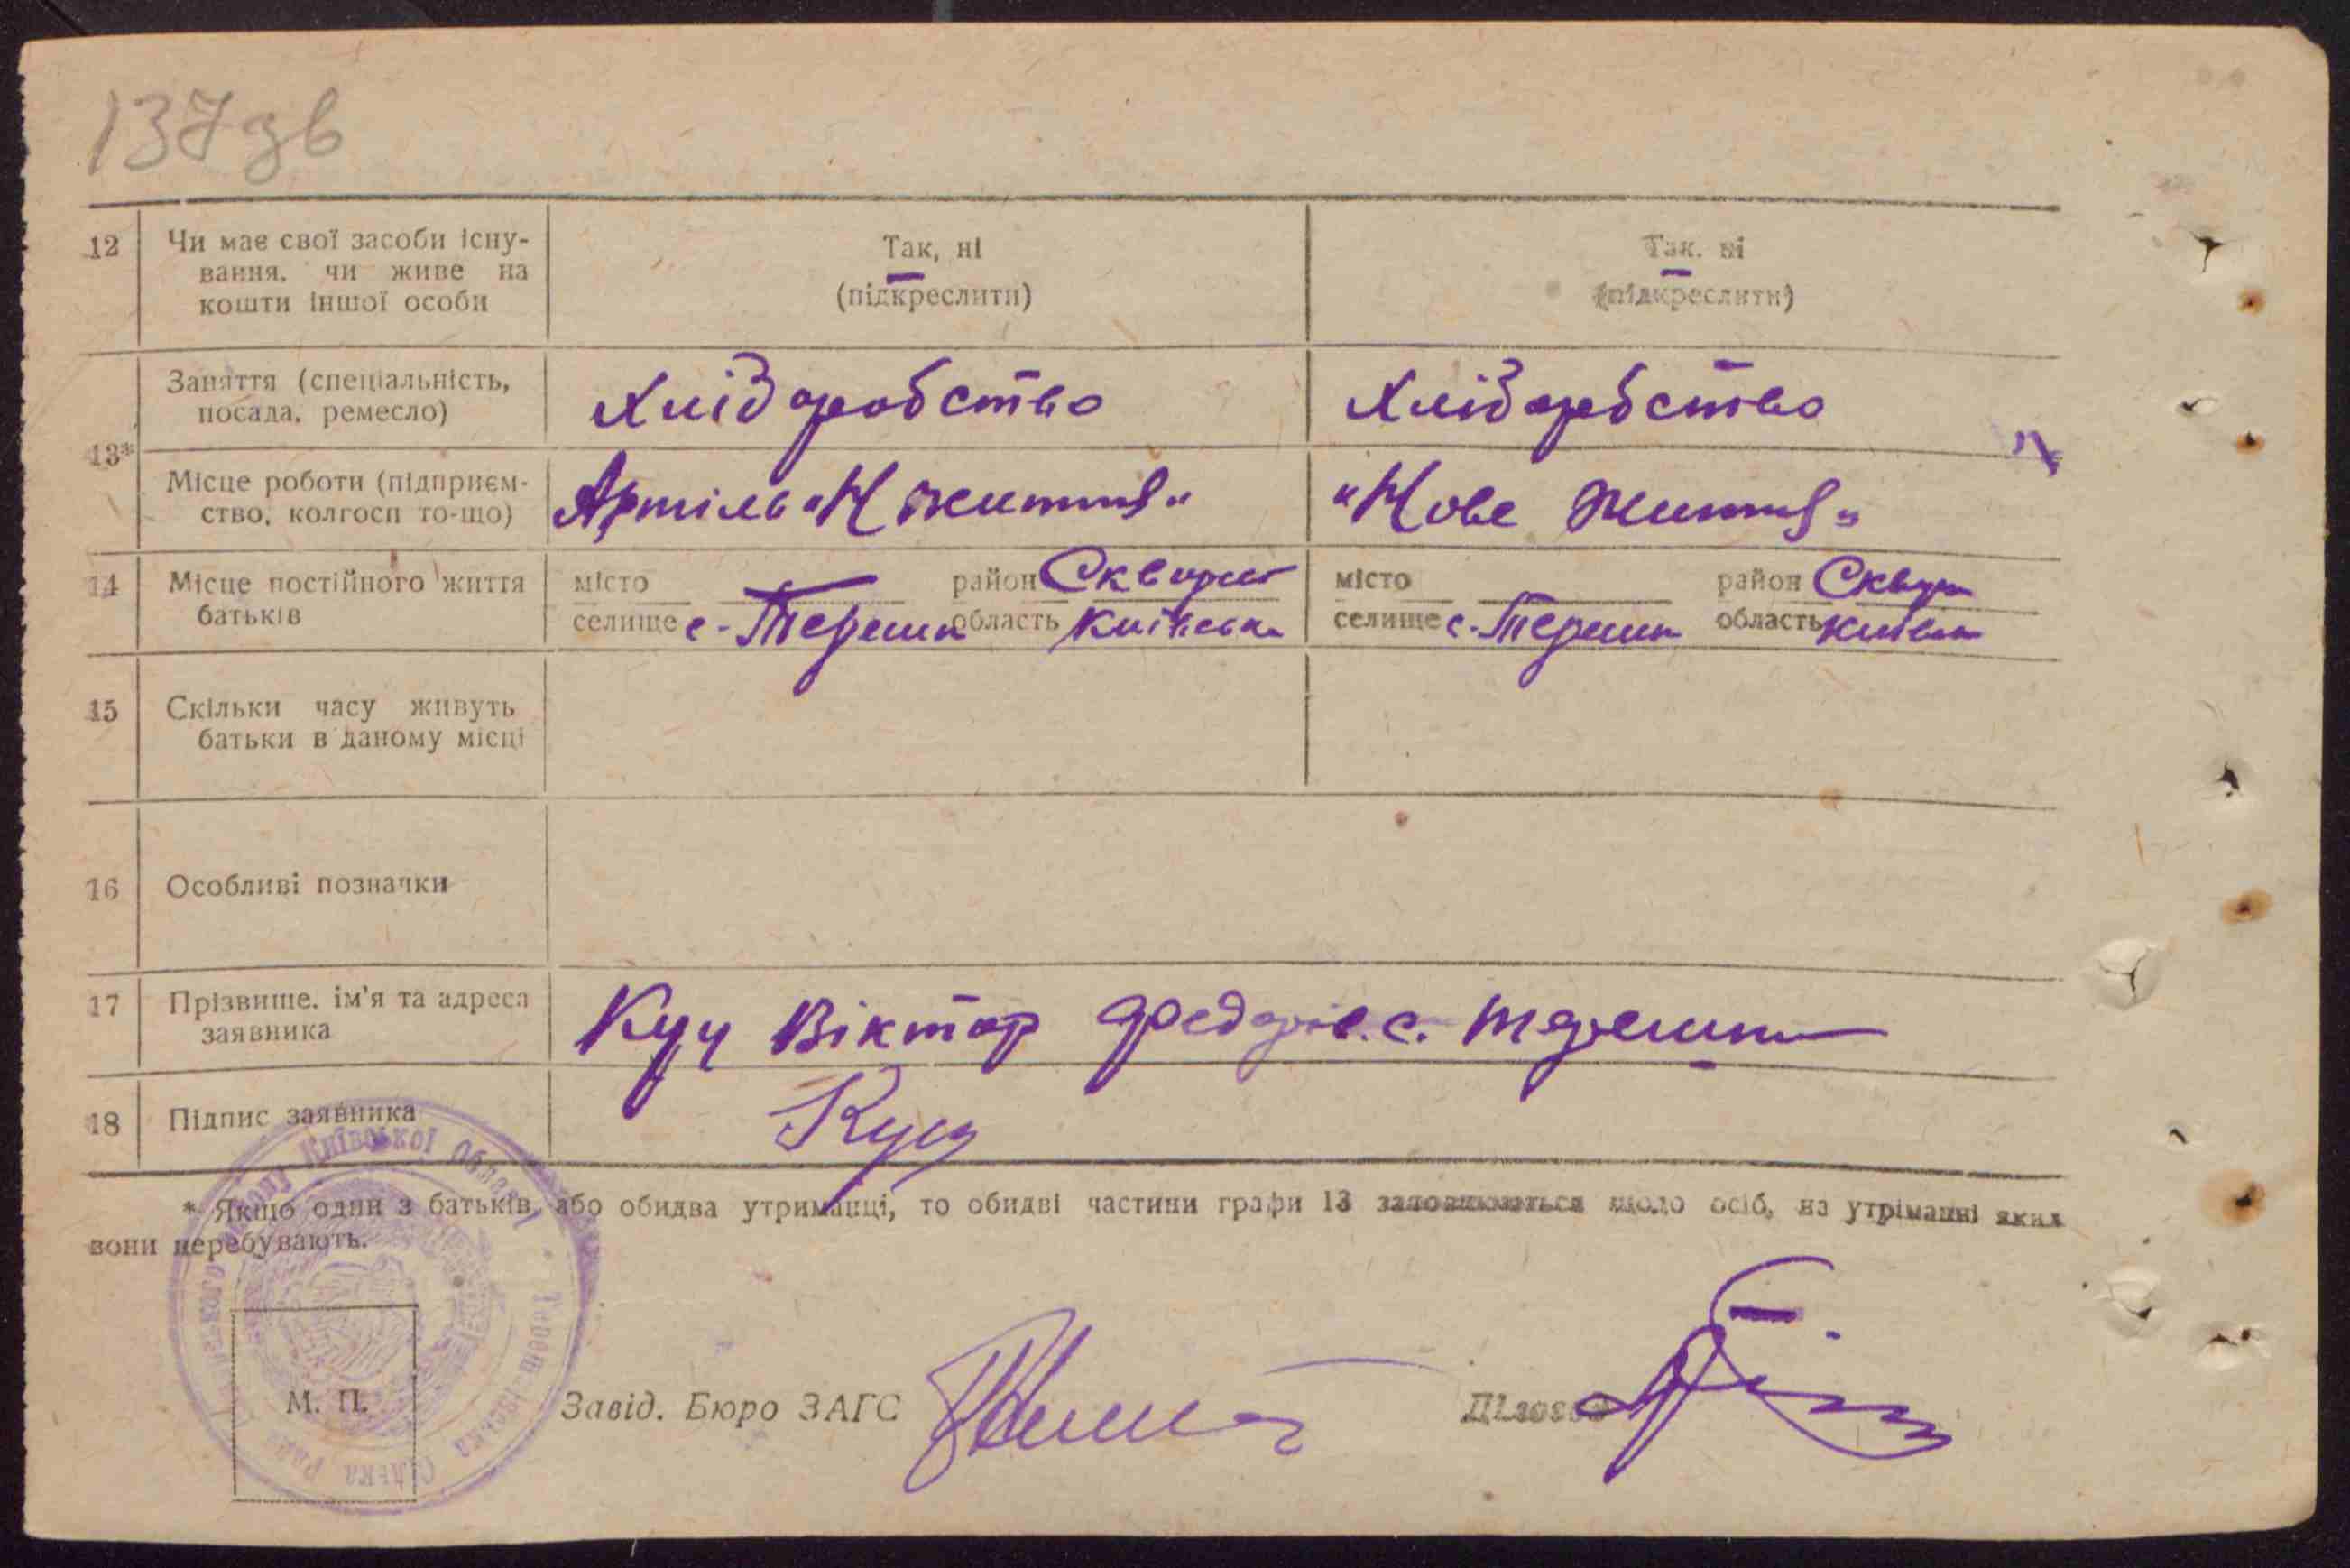 137 зв
12 Чи має свої засоби існу- Так, ні Так. ні
вання. чи живе на (підкреслити) (підкреслити)
кошти іншої особи
Заняття (спеціальність, Хліборобство Хліборобство
посада, ремесло)
13*
Місце роботи (підприєм- Артіль "Н життя" "Нове життя"
ство, колгосп то-що)
14 Місце постійного життя місто район Сквирсь місто район Сквир
батьків селище с. Терешк область Київська селище с. Терешк область Київсь
15 Скільки часу живуть
батьки в даному місці
16 Особливі позначки
17 Прізвище. ім'я та адреса Куч Віктор Федоров. с. Терешки
заявника
18 Підпис заявника Куч
* Якщо один з батьків, або обидва утриманці, то обидві частини графи 13 заповнюються щодо осіб, на утріманні яких
вони перебувають.
Київської Області
Сільська Рада
М. П. Завід. Бюро ЗАГС Діловод